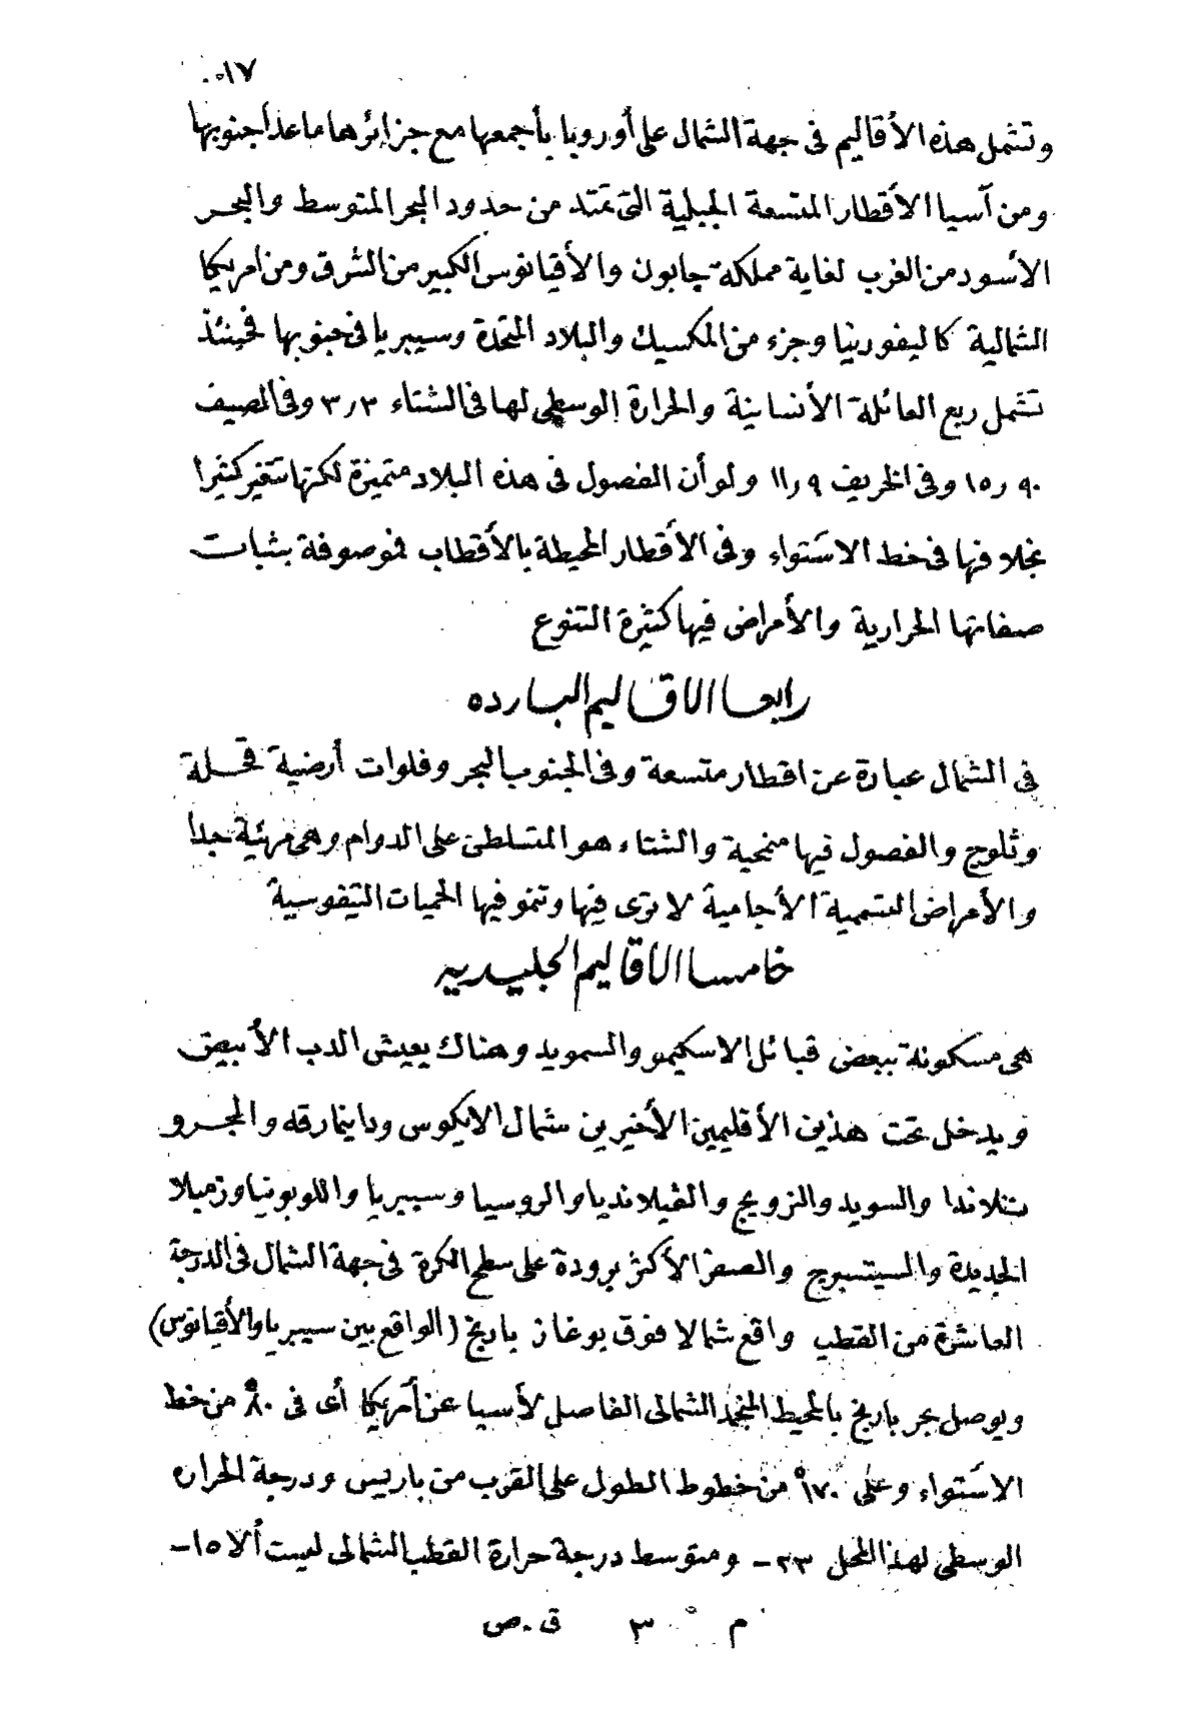 ١٧
وتشمل هذه الأقاليم فى جهة الشمال على أوروبا بأجمعها مع جزائرها ماعدا جنوبها
ومن آسيا الأقطار المتسعة الجبلية التى تمتد من حدود البحر المتوسط والبحر
الأسود من الغرب لغاية مملكة چابون والأقيانوس الكبير من الشرق ومن امريكا
الشمالية كاليفورنيا وجزء من المكسيك والبلاد المتحدة وسيبريا فى جنوبها فحينئذ
تشمل ربع العائلة الأنسانية والحرارة الوسطى لها فى الشتاء ٣٫٣ وفى المصيف
١٥٫٩٠ وفى الخريف ١١٫٩ ولو أن الفصول فى هذه البلاد متميزة لكنها تتغير كثيرا
بخلافها فى خط الاستواء وفى الأقطار المحيطة بالأقطاب فموصوفة بثبات
صفاتها الحرارية والأمراض فيها كثيرة التنوع
رابعا الاقاليم البارده
فى الشمال عبارة عن اقطار متسعة وفى الجنوب البحر وفلوات أرضية قحلة
وثلوج والفصول فيها منمحية والشتاء هو المتسلطن على الدوام وهى مرئية جدا
والأمراض التسممية الأجامية لا ترى فيها وتنمو فيها الحميات التيفوسية
خامسا الاقاليم الجليديه
هى مسكونة ببعض قبائل الاسكيمو والسمويد وهناك يعيش الدب الأبيض
ويدخل تحت هذين الأقليمين الأخيرين شمال الايكوس وداينمارقه والجرو
ئنلاندا والسويد والنرويج والفيلانديا والروسيا وسيبريا واللوبونيا وزمبلا
الجديدة والسيتسبرج والصقر الأكثر برودة على سطح الكرة فى جهة الشمال فى الدرجة
العاشرة من القطب واقع شمالا فوق بوغاز باريخ (الواقع بين سيبريا والأقيانوس)
ويوصل بحر باريخ بالمحيط المنجمد الشمالى الفاصل لأسيا عن أمريكا أى فى ٨٠° من خط
الاستواء وعلى ١٧٠° من خطوط الطول على القرب من باريس ودرجة الحراره
الوسطى لهذا المحل ٢٣- ومتوسط درجة حرارة القطب الشمالى ليست ألا ١٥-
م ٣ ق . ص